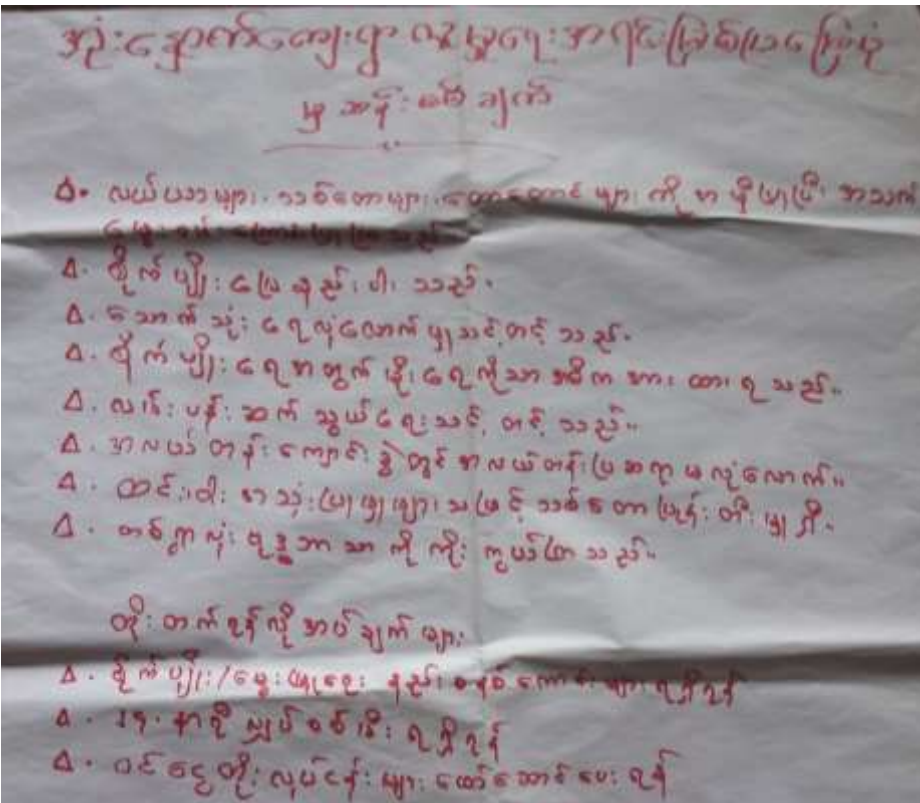 အုံးနှောက်ကျေးရွာ လူမှုရေးအရင်းမြစ်ပြမြေပုံ
မှ ဆန်းစစ်ချက်
Δ. လယ်ယာများ, သစ်တောများ, တောတောင်များ ကို မှီပြုပြီး အသက်
မွေးဝမ်းကြောင်းပြုကြသည်
Δ. စိုက်ပျိုးမြေနည်းပါးသည်.
Δ. သောက်သုံးရေလုံလောက်မှုသင့်တင့်သည်.
Δ. စိုက်ပျိုးရေအတွက် မိုးရေကိုသာ အဓိကအားထားရသည်။
Δ. လမ်းပန်းဆက်သွယ်ရေးသင့်တင့်သည်။
Δ. အလယ်တန်းကျောင်းခွဲတွင် အလယ်တန်းပြဆရာမလုံလောက်။
Δ. ထင်းမီးစာသုံးပြုမှုများသဖြင့် သစ်တောပြုန်းတီးမှုရှိ.
Δ. တစ်ရွာလုံးဗုဒ္ဓဘာသာကိုကိုးကွယ်ကြသည်။
တိုးတက်ရန်လိုအပ်ချက်များ
Δ. စိုက်ပျိုး/မွေးမြူရေး နည်းစနစ်ကောင်းများရရှိရန်
Δ. ၂၄. နာရီလျှပ်စစ်မီးရရှိရန်
Δ. ဝင်ငွေတိုးလုပ်ငန်းများဖော်ဆောင်ပေးရန်